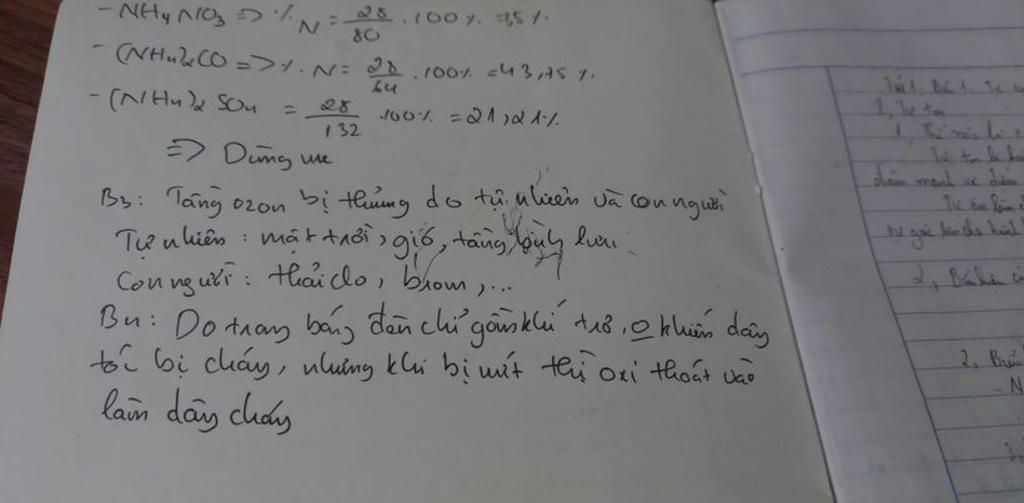 - NH4 NO3 => % N = 28/80 . 100% = 35%
- (NH4)2CO => % N = 28/64 . 100% = 43,75%.
- (NH4)2 SO4 = 28/132 . 100% = 21,21%
=> Dùng ure
B3: Tầng ozon bị thủng do tự nhiên và con người
Tự nhiên: mặt trời, gió, tầng bình lưu
Con người: thải clo, brom, ...
B4: Do trong bóng đèn chỉ gồm khí trơ, 0 khiến dây
tóc bị cháy, nhưng khi bị nứt thì oxi thoát vào
làm dây cháy
1, Tự tin
1, Thế nào là
Tự tin là
2, Biểu
- N
3,